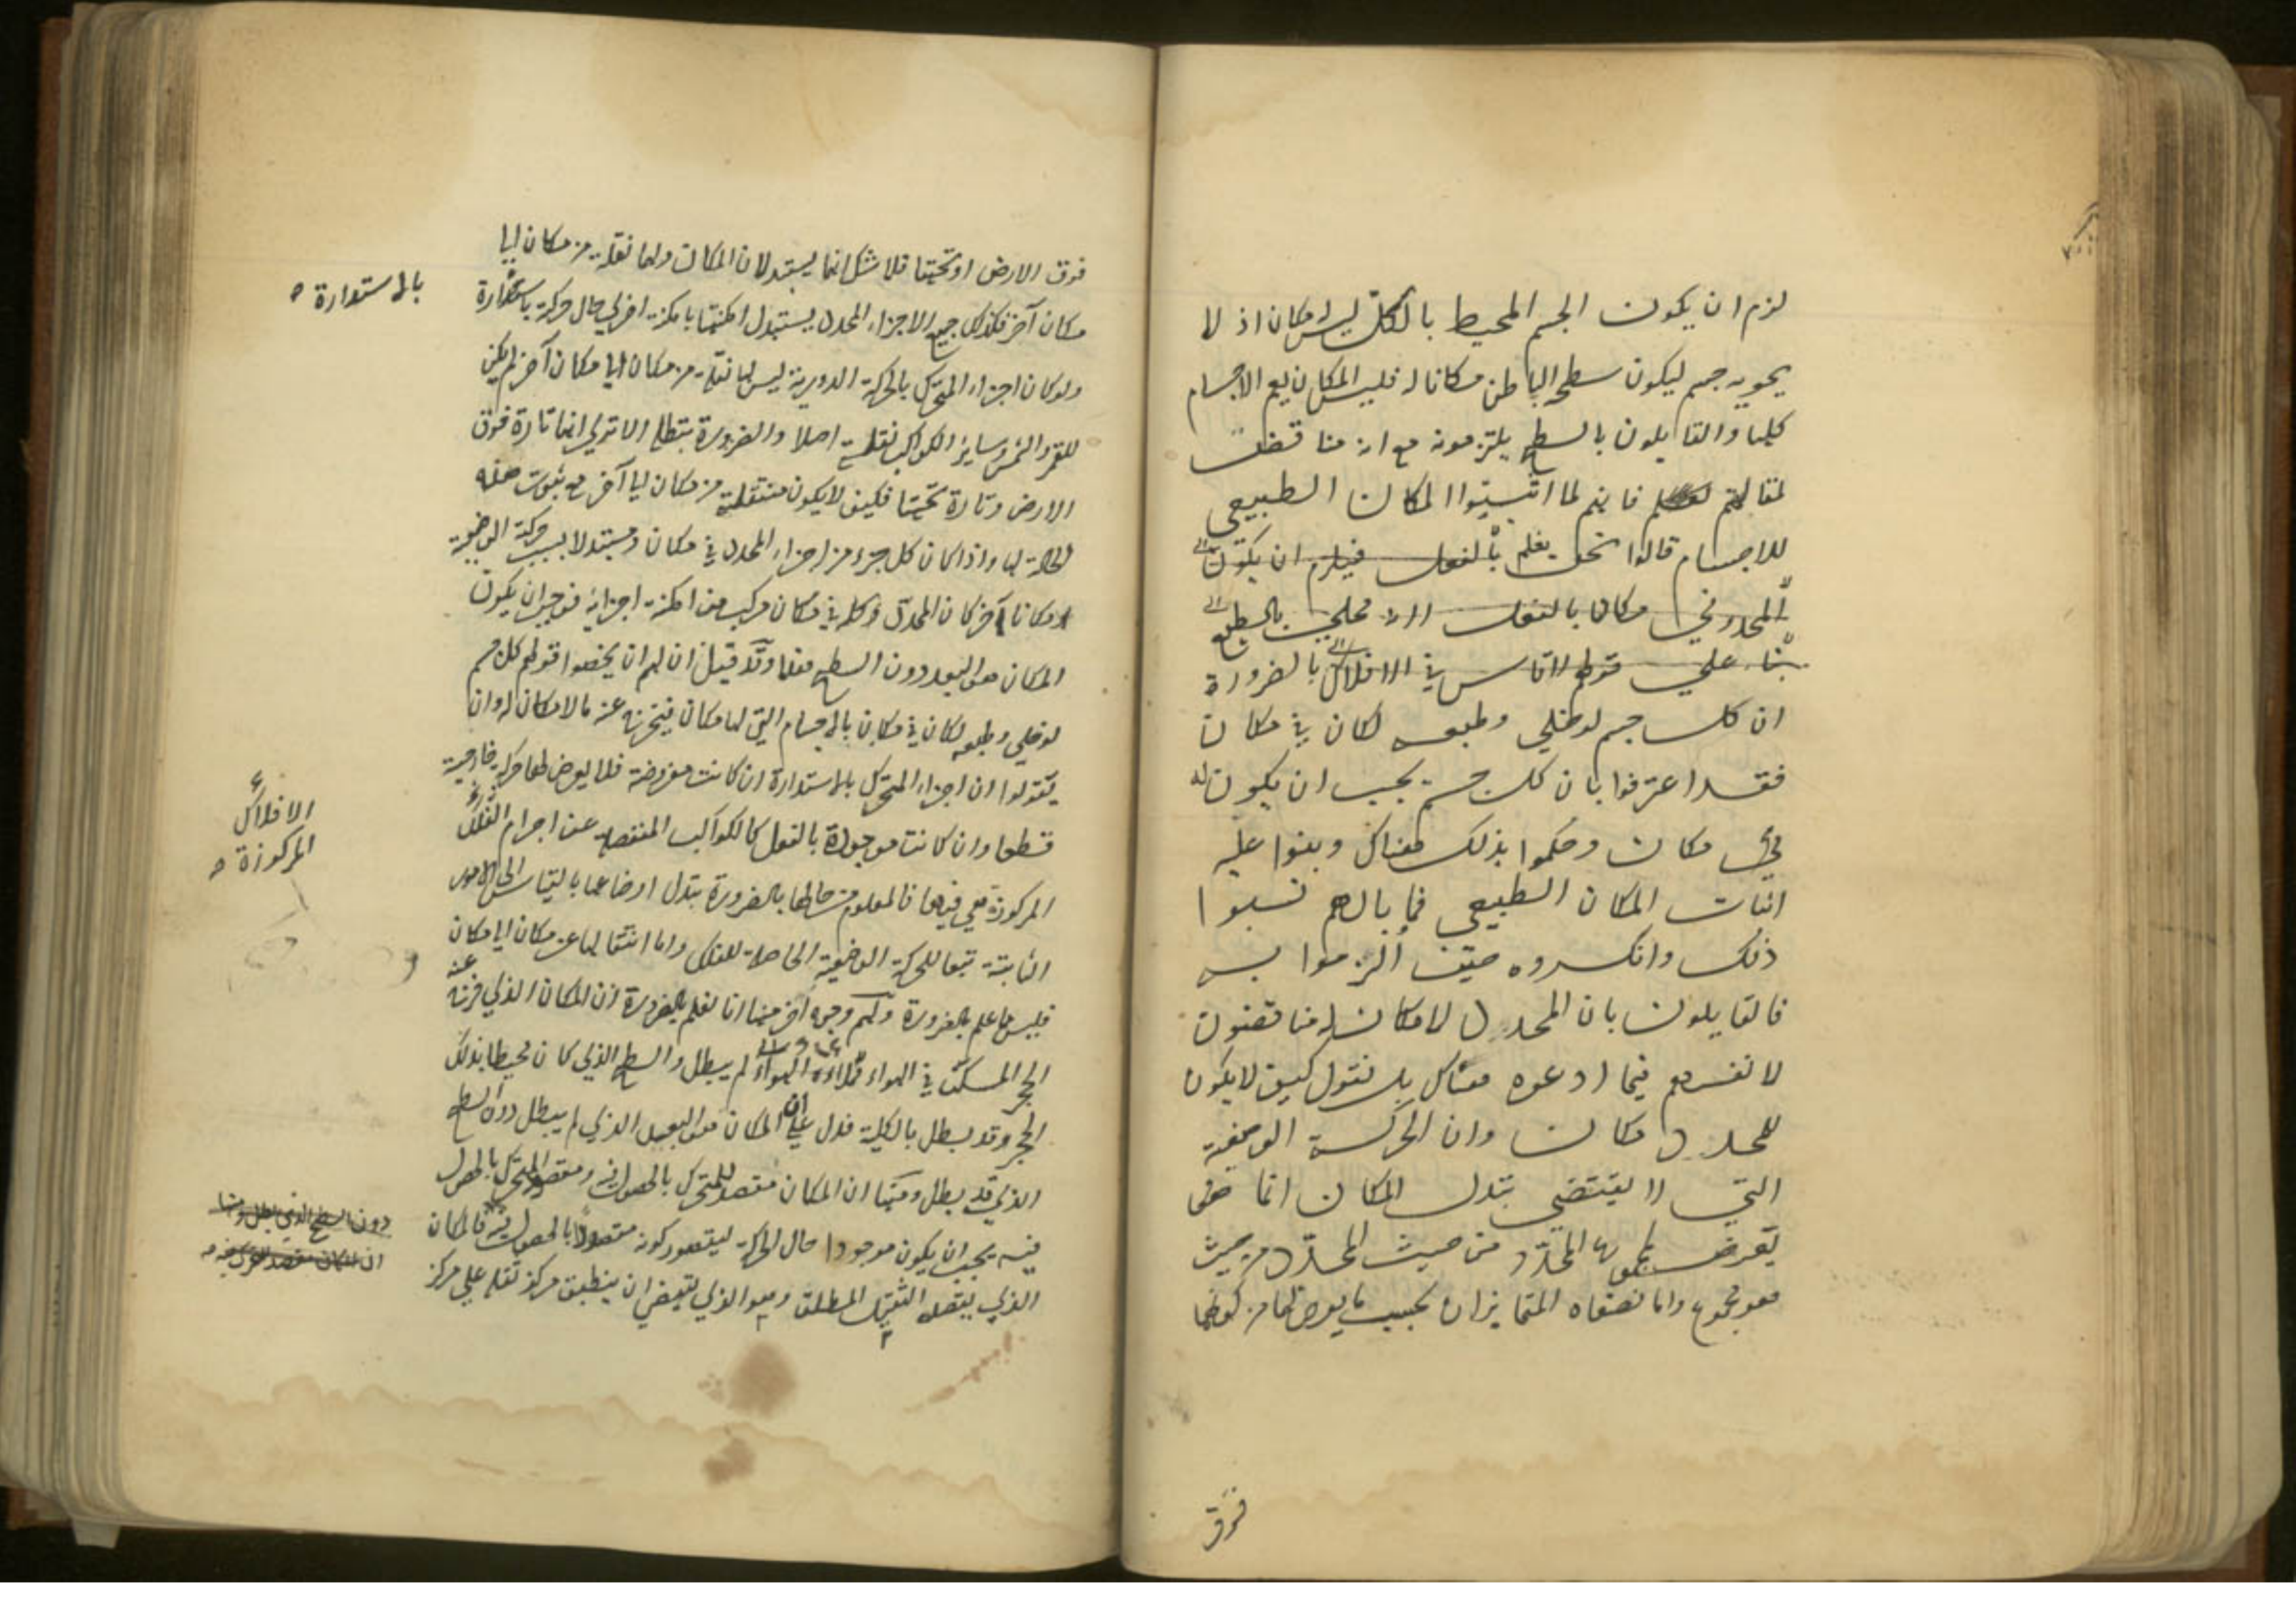 لزم ان يكون الجسم المحيط بالكل ليس له مكان اذ لا
يحويه جسم ليكون سطحه الباطن مكانا له فليس المكان يعم الاجسام
كلها والقايلون بالسطح يلتزمونه مع انه مناقضة
لمقالتهم فانهم لما اثبتوا المكان الطبيعي
للاجسام قالوا نحن نعلم بالفعل فيلزم ان يكون
للمحدد في مكان بالفعل بالسطح
بناء على قولهم في الافلاك بالضرورة
ان كل جسم لو خلي وطبعه لكان في مكان
فقد اعترفوا بان كل جسم يجب ان يكون له
في مكان وحكموا بذلك هناك وبنوا عليه
اثبات المكان الطبيعي فما بالهم نسبوا
ذلك وانكروه حيث ألزموا به
فالقايلون بان المحدد لا مكان له مناقضون
لانفسهم فيما ادعوه هناك بل نقول كيف لا يكون
للمحدد مكان وان الحركة الوضعية
التي لا يقتضي تبدل المكان انما هي
تعرض لمجموع المحدد من حيث المحدد من حيث
هو مجموع واما نصفاه المتمايزان بحسب ما يعرض لهما من كونهما
فوق
فوق الارض او تحتها فلا شك انهما يستبدلان المكان ولهما نقلة من مكان الى
مكان آخر فكذلك جميع الاجزاء المحدد يستبدل امكنتها بامكنة اخرى حال حركته بالاستدارة
بالاستدارة
ولو كان اجزاء المتحرك بالحركة الدورية ليس لها نقلة من مكان الى مكان آخر لم يكن
للقمر والشمس وساير الكواكب نقلة اصلا والضرورة تبطله الا ترى انها تارة فوق
الارض وتارة تحتها فكيف لا يكون منتقلة من مكان الى آخر مع ثبوت هذه
الحالة لها واذا كان كل جزء من اجزاء المحدد في مكان ومستبدلا بسبب حركته الوضعية
مكانا آخر كان المحدد كله في مكان مركب من امكنة اجزائه فوجب ان يكون
المكان هو البعد دون السطح وقد قيل ان لهم ان يخصوا قولهم كل جسم
لو خلي وطبعه لكان في مكان بالاجسام التي لها مكان فيخرج عنه ما لا مكان له وان
يقولوا ان اجزاء المتحرك بالاستدارة ان كانت مفروضة فلا يعرض لها حركة خارجية
قطعا وان كانت موجودة بالفعل كالكواكب المنفصلة عن اجرام الفلك
الافلاك
المركوزة
المركوزة هي فيها فالمعلوم من حالها بالضرورة تبدل اوضاعها بالقياس الى الامور
الثابتة تبعا للحركة الوضعية الحاصلة للفلك واما انتقالها عن مكان الى مكان
فليس مما علم بالضرورة ولهم وجوه آخر منها انا نعلم بالضرورة ان المكان الذي خرج عنه
الحجر المسكن في الهواء فملأه الهواء لم يبطل والسطح الذي كان محيطا بذلك
الحجر وقد بطل بالكلية فدل على ان المكان هو البعد الذي لم يبطل دون السطح
الذي قد بطل ومنها ان المكان مقصد للمتحرك بالحصول فيه ومقصد المتحرك بالحصول
دون السطح الذي بطل ومنها
ان المكان مقصد المتحرك
فيه يجب ان يكون موجودا حال الحركة ليتصور كونه مقصودا بالحصول فيه فالمكان
الذي يقصده الثقيل المطلق وهو الذي يقتضي ان ينطبق مركز ثقله على مركز